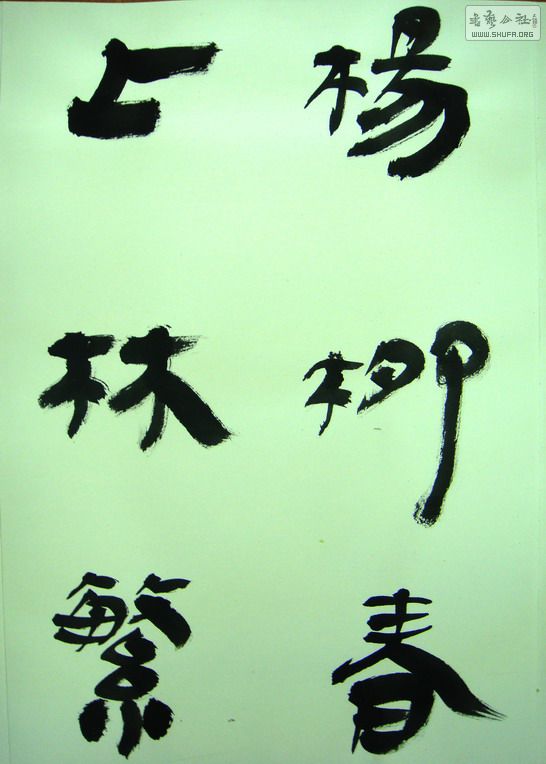 楊柳春
上林繁
書藝公社
WWW.SHUFA.ORG